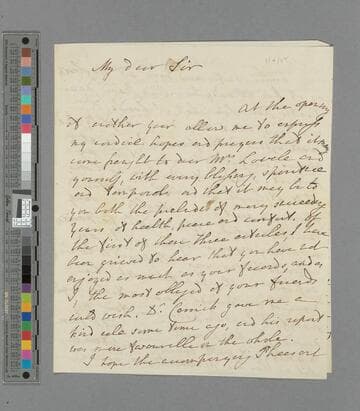 My dear Sir
At the opening
of another year allow me to express
my cordial hopes and prayers that it may
come fraught to dear Mrs. Lovell and
yourself, with every blessing, spiritual
and temporal and that it may be to
you both the prelude of many succeeding
years of health, peace and comfort. Of
the first of these three articles I have
been grieved to hear that you have not
enjoyed as much as your friends, and as
I the most obliged of your friends
could wish. Dr. Carrick gave me a
kind call some time ago, and his report
was more favourable on the whole.
I hope the accompanying Pheasant